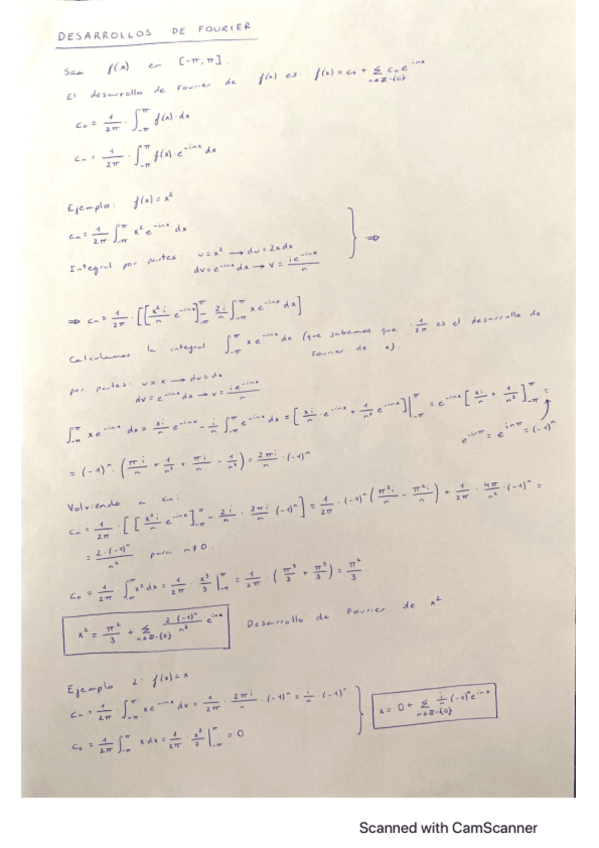 DESARROLLOS DE FOURIER
Sea f(x) en [-π, π].
El desarrollo de Fourier de f(x) es: f(x) = c₀ + Σ_{n∈ℤ-{0}} cₙ e^{inx}
c₀ = 1/2π · ∫_{-π}^{π} f(x)·dx
cₙ = 1/2π · ∫_{-π}^{π} f(x)·e^{-inx} dx
Ejemplo: f(x) = x²
cₙ = 1/2π ∫_{-π}^{π} x² e^{-inx} dx
Integral por partes: u = x² → du = 2x dx
dv = e^{-inx} dx → v = i e^{-inx}/n } ⇒
⇒ cₙ = 1/2π · [[x² i/n e^{-inx}]_{-π}^{π} - 2i/n ∫_{-π}^{π} x e^{-inx} dx]
Calculamos la integral ∫_{-π}^{π} x e^{-inx} dx (que sabemos que · 1/2π es el desarrollo de
Fourier de x).
por partes: u = x → du = dx
dv = e^{-inx} dx → v = i e^{-inx}/n
∫_{-π}^{π} x e^{-inx} dx = xi/n e^{-inx} - i/n ∫_{-π}^{π} e^{-inx} dx = [xi/n · e^{-inx} + 1/n² e^{-inx}]|_{-π}^{π} = e^{-inx} [xi/n + 1/n²]_{-π}^{π} =
e^{-inπ} = e^{inπ} = (-1)ⁿ
= (-1)ⁿ · (πi/n + 1/n² + πi/n - 1/n²) = 2πi/n · (-1)ⁿ
Volviendo a cₙ:
cₙ = 1/2π · [[x² i/n e^{-inx}]_{-π}^{π} - 2i/n · 2πi/n (-1)ⁿ] = 1/2π · (-1)ⁿ (π² i/n - π² i/n) + 1/2π · 4π/n² · (-1)ⁿ =
= 2·(-1)ⁿ/n² para n≠0.
c₀ = 1/2π · ∫_{-π}^{π} x² dx = 1/2π · x³/3 |_{-π}^{π} = 1/2π · (π³/3 + π³/3) = π²/3
x² = π²/3 + Σ_{n∈ℤ-{0}} 2·(-1)ⁿ/n² e^{inx} Desarrollo de Fourier de x²
Ejemplo 2: f(x) = x
cₙ = 1/2π · ∫_{-π}^{π} x e^{-inx} dx = 1/2π · 2πi/n · (-1)ⁿ = i/n · (-1)ⁿ
c₀ = 1/2π ∫_{-π}^{π} x dx = 1/2π · x²/2 |_{-π}^{π} = 0
x = 0 + Σ_{n∈ℤ-{0}} i/n (-1)ⁿ e^{inx}
Scanned with CamScanner